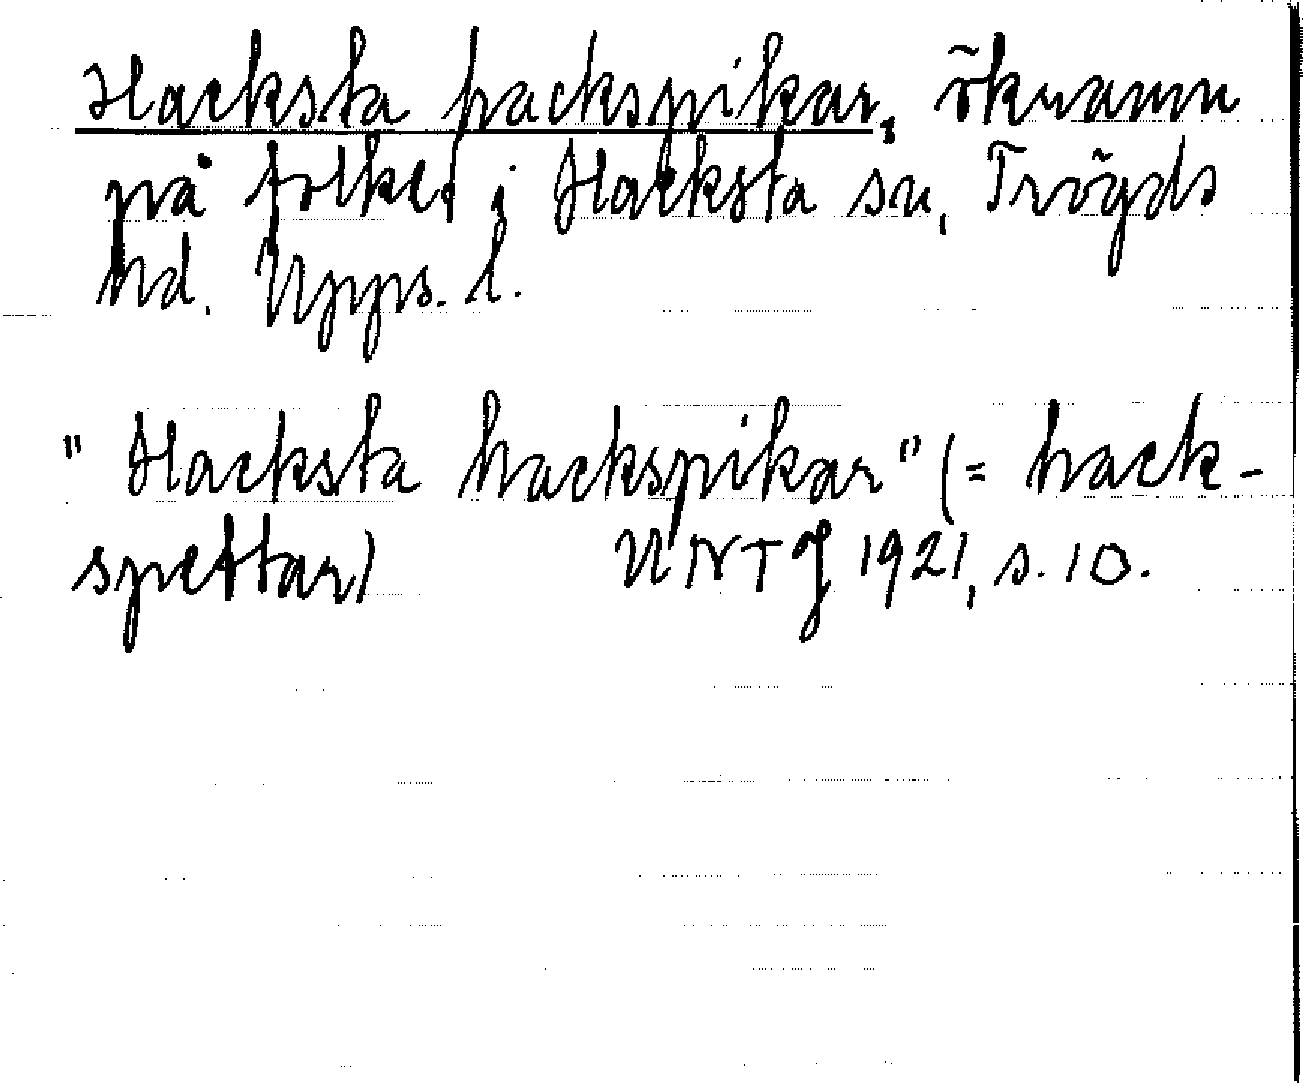 Hacksta hackspikar, öknamn
på folket i Hacksta sn, Trögds
hd. Upps. l.
"Hacksta hackspikar" (= hack-
spettar) UNTJ 1921, s. 10.